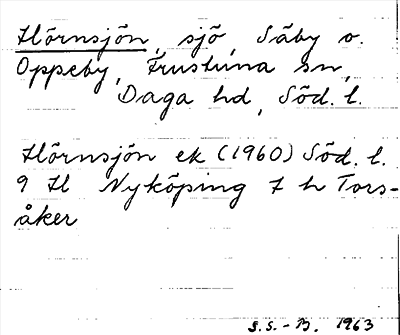 Hörnsjön, sjö, Säby o.
Oppeby, Frustuna sn,
Daga hd, Söd. l.
Hörnsjön ek (1960) Söd. l.
9 H Nyköping 7 h Tors-
åker
S.S.-B. 1963